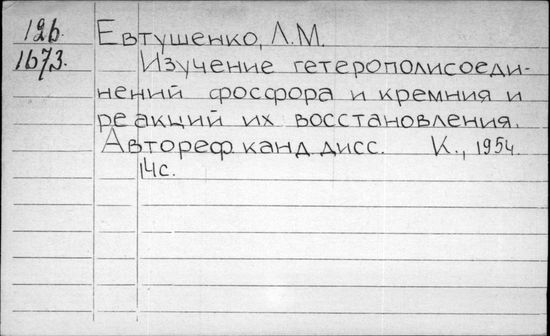 126.
1673.
Евтушенко, Л.М.
Изучение гетерополисоеди-
нений фосфора и кремния и
реакций их восстановления.
Автореф канд дисс. К., 1954.
14с.